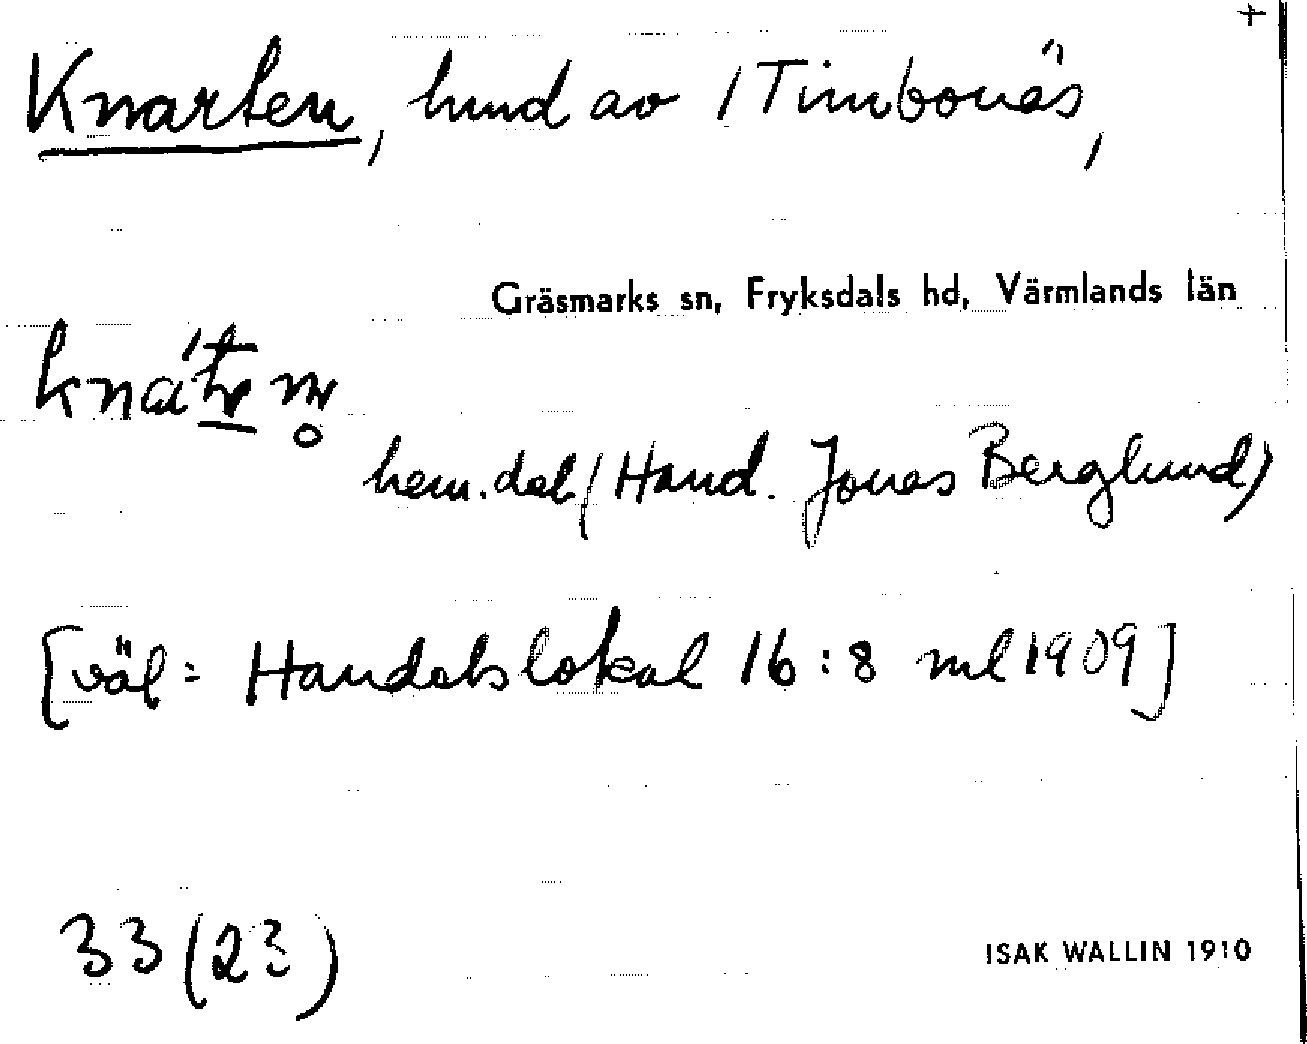 +
Knarten, hmd av 1 Timbonäs,
Gräsmarks sn, Fryksdals hd, Värmlands län
hem.del (Hand. Jonas Berglund)
[väl = Handelslokal 16:8 ml 1909]
33 (23)
ISAK WALLIN 1910